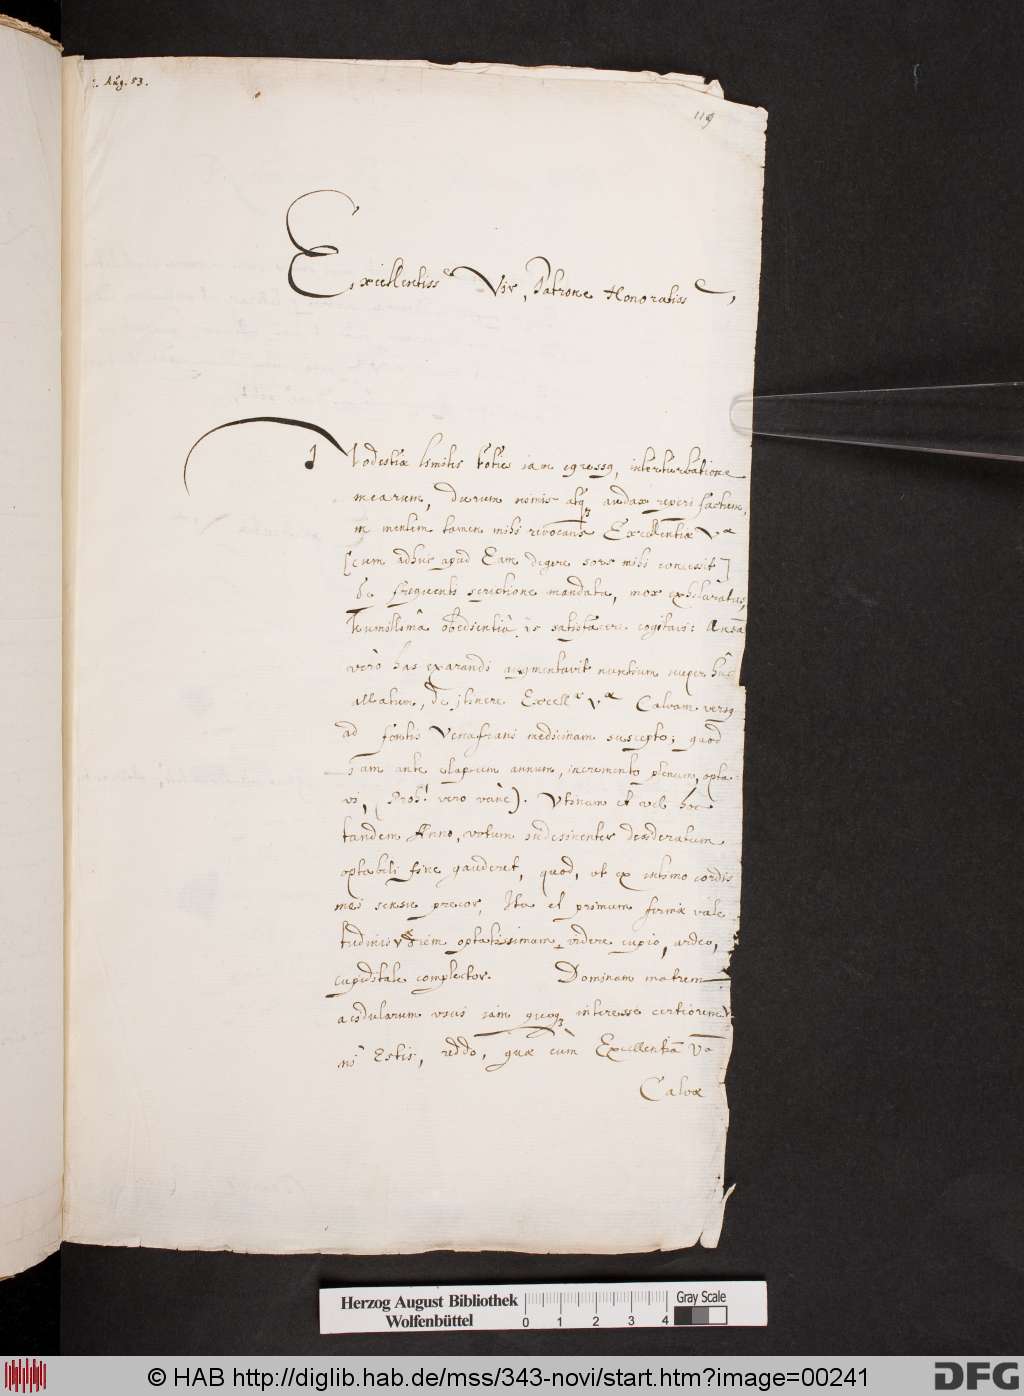 Aug. 53.
119
Excellentiss^e Vir, Patrone Honoratiss^e,
Modestiæ limitis toties iam egressq, interturbatione
mearum, durum nimis atq audax reperi factum,
in mentem tamen mihi revocans Excellentiæ V^æ
[cum adhuc apud Eam degere sors mihi concessit]
de frequenti scriptione mandata, mox exhilaratus,
humillimâ obedientiâ is satisfacere cogitavi: Ansā
verò has exarandi augmentavit nuntium nuper hûc
allatum, de itinere Excell^æ V^æ Calvam versq
ad fontis medicinam suscepto; quod
iam ante elapsum annum, incremento plenum, opta-
vi, (Proh! vero vanè). Utinam et vel hoc
tandem Anno, votum indesinenter desideratum
optabili fine gauderet, quod, ut ex intimo cordis
mei sensu precor, Ita et primum firmæ vale
tudinis diem optatissimam, videre cupio, ardeo,
cupiditate complector. Dominam matrem
acidularum usui iam quoq interesse certiorem
Estis, reddo, quæ cùm Excellentiâ Vâ
Calvæ
Herzog August Bibliothek
Wolfenbüttel
0 1 2 3 4
Gray Scale
© HAB http://diglib.hab.de/mss/343-novi/start.htm?image=00241
DFG